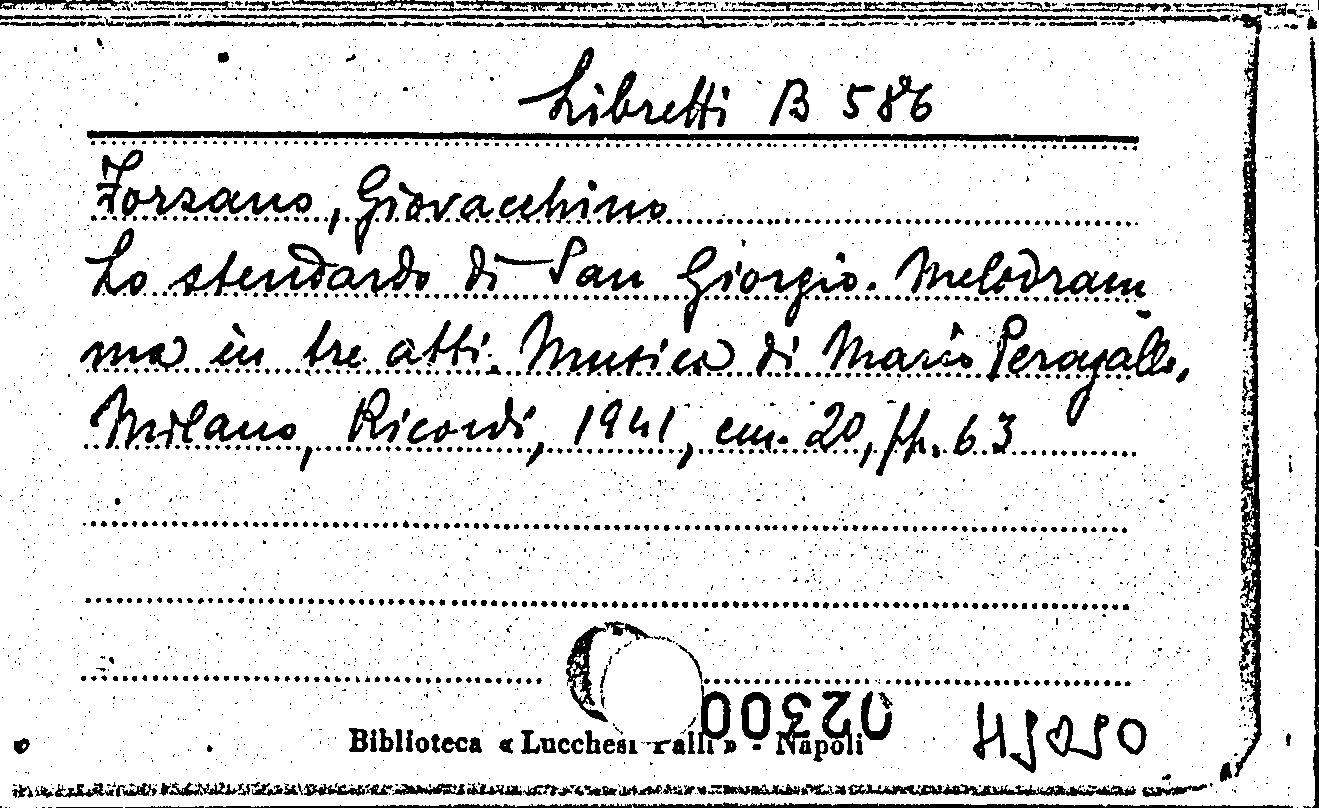 Libretti B 586
Forzano, Giovacchino
Lo stendardo di San Giorgio. Melodram-
ma in tre atti. Musica di Mario Peragallo,
Milano, Ricordi, 1941, cm. 20, pp. 63
02300
Biblioteca « Lucchesi Palli » - Napoli